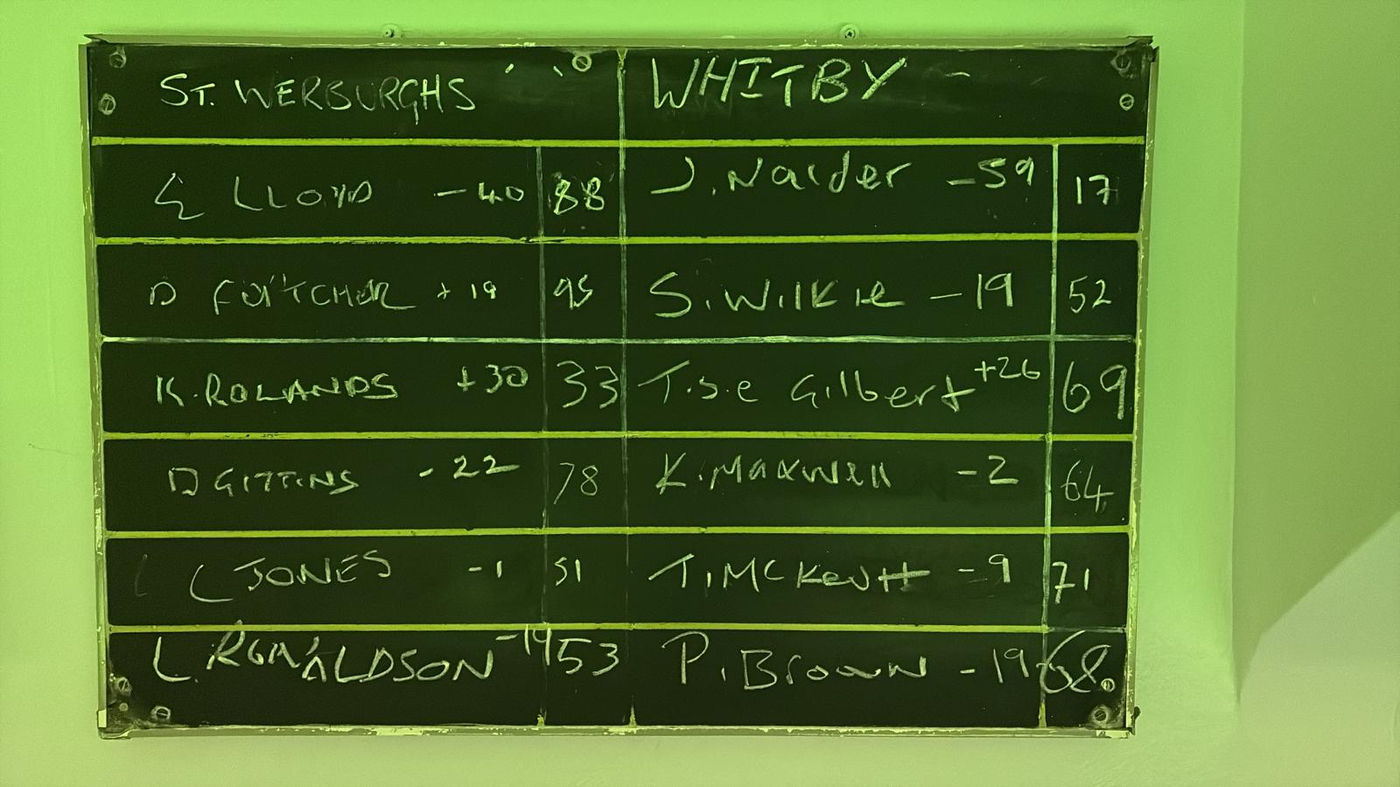 ST. WERBURGHS WHITBY
E LLOYD -40 88 J. Nalder -59 17
D +19 95 S. Wilkie -19 52
K. ROLANDS +30 33 T.S.e Gilbert +26 69
D GITTINS -22 78 K. Maxwell -2 64
C JONES -1 51 T. -9 71
L. RONALDSON -19 53 P. Brown -19 68